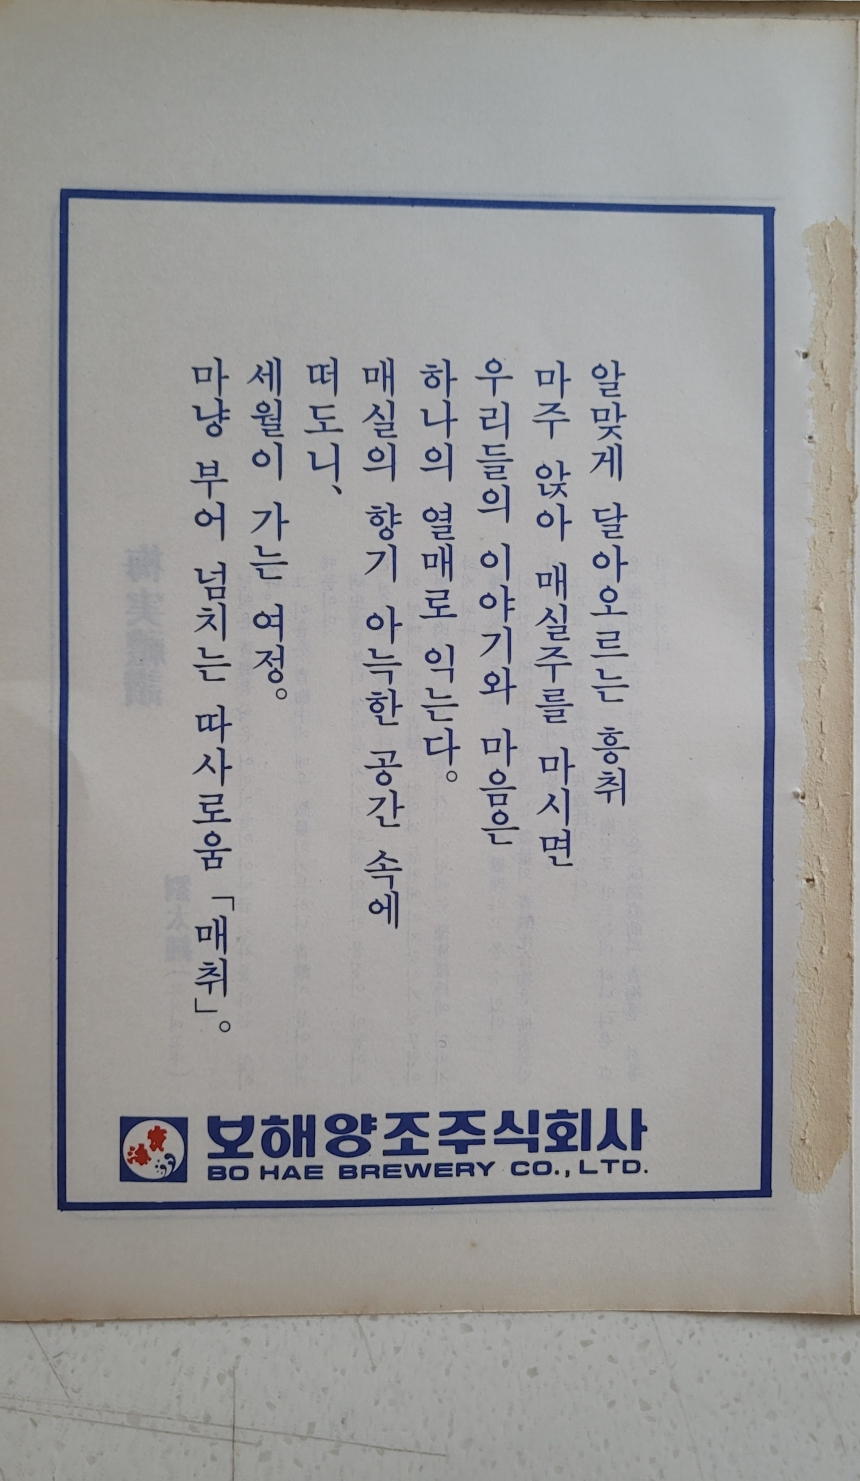 알맞게 달아오르는 흥취
마주 앉아 매실주를 마시면
우리들의 이야기와 마음은
하나의 열매로 익는다。
매실의 향기 아늑한 공간 속에
떠도니、
세월이 가는 여정。
마냥 부어 넘치는 따사로움 「매취」。
寶海
보해양조주식회사
BO HAE BREWERY CO., LTD.